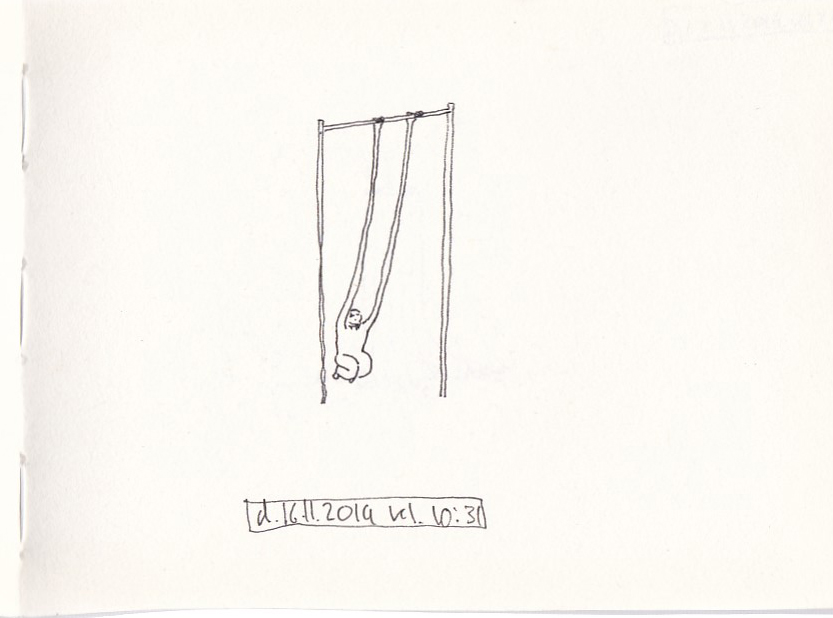 d.16.11.2019 kl. 10:31